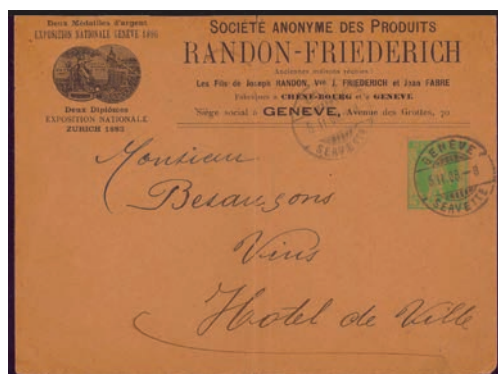 Deux Médailles d'argent
EXPOSITION NATIONALE GENÈVE 1896
Deux Diplômes
EXPOSITION NATIONALE
ZURICH 1883
SOCIÉTÉ ANONYME DES PRODUITS
RANDON-FRIEDERICH
Anciennes maisons réunies :
Les Fils de Joseph RANDON, Vve J. FRIEDERICH et Jean FABRE
Fabriques à CHÊNE-BOURG et à GENÈVE
Siège social à GENÈVE, Avenue des Grottes, 70
GENÈVE
SERVETTE
SERVETTE
Monsieur
Besançons
Vins
Hotel de Ville